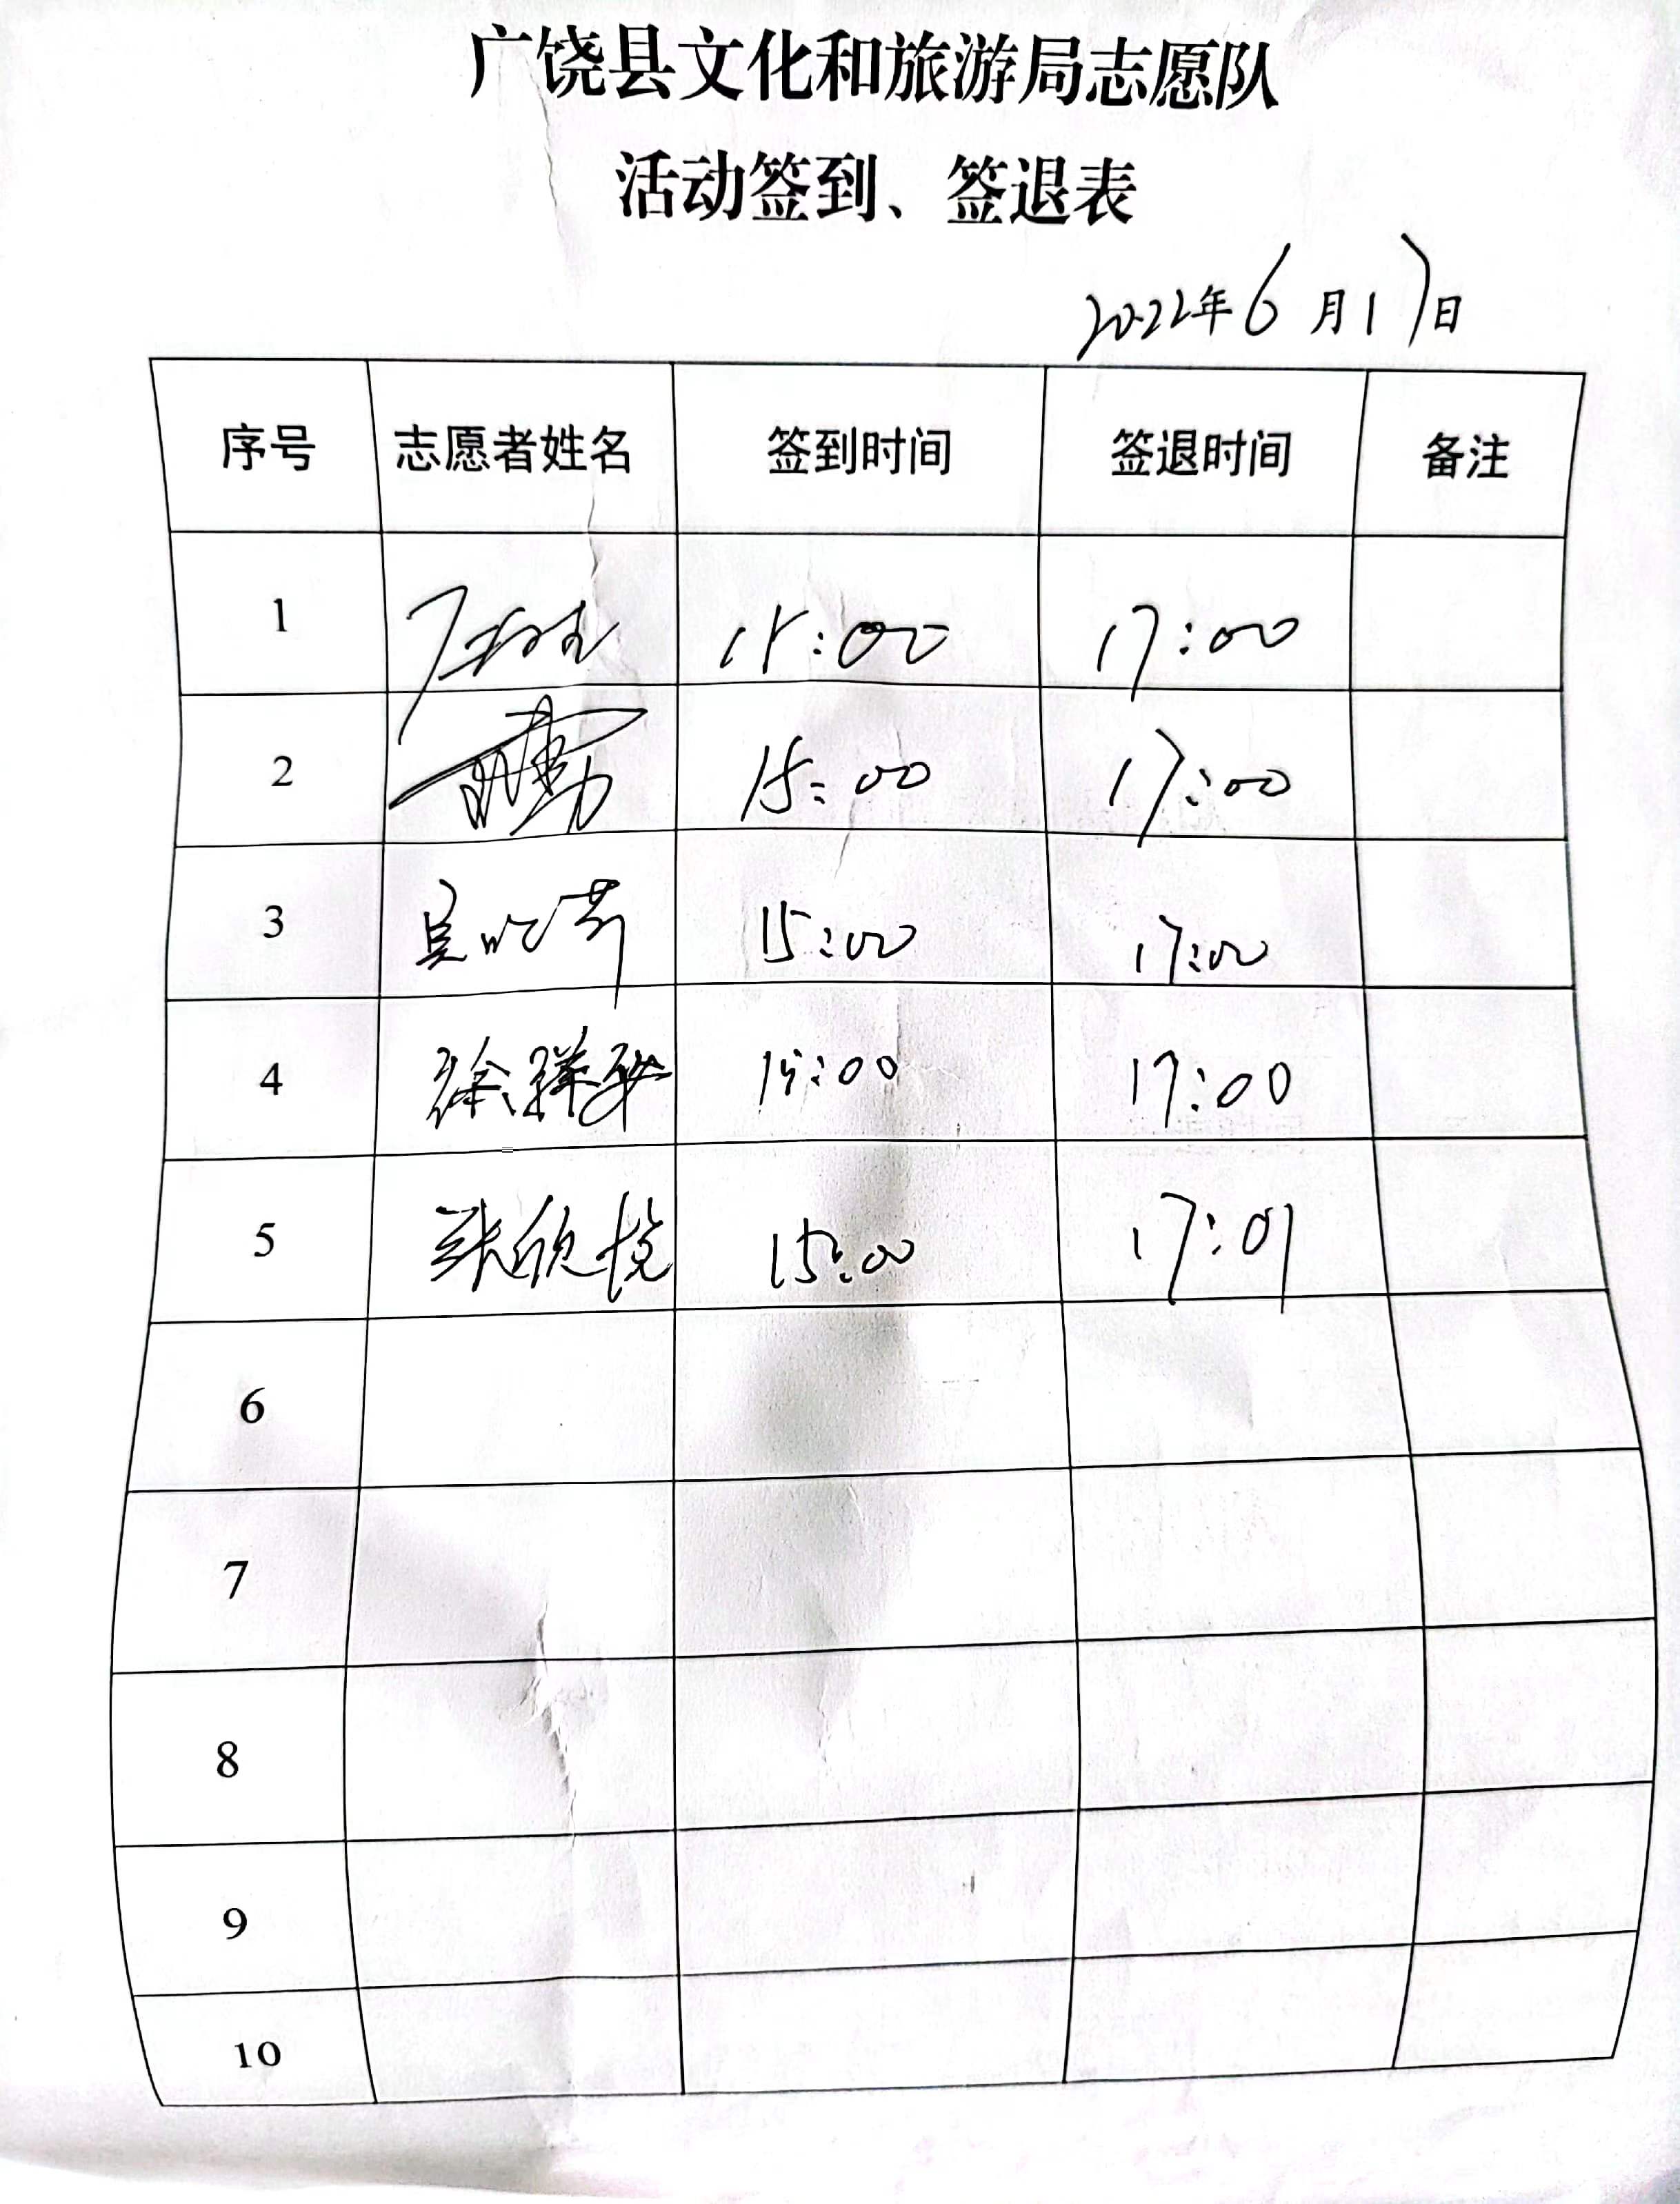 广饶县文化和旅游局志愿队
活动签到、签退表
2022年6月17日
序号 志愿者姓名 签到时间 签退时间 备注
1 15:00 17:00
2 15:00 17:00
3 15:00 17:00
4 徐祥 15:00 17:00
5 张欣悦 15:00 17:01
6
7
8
9
10